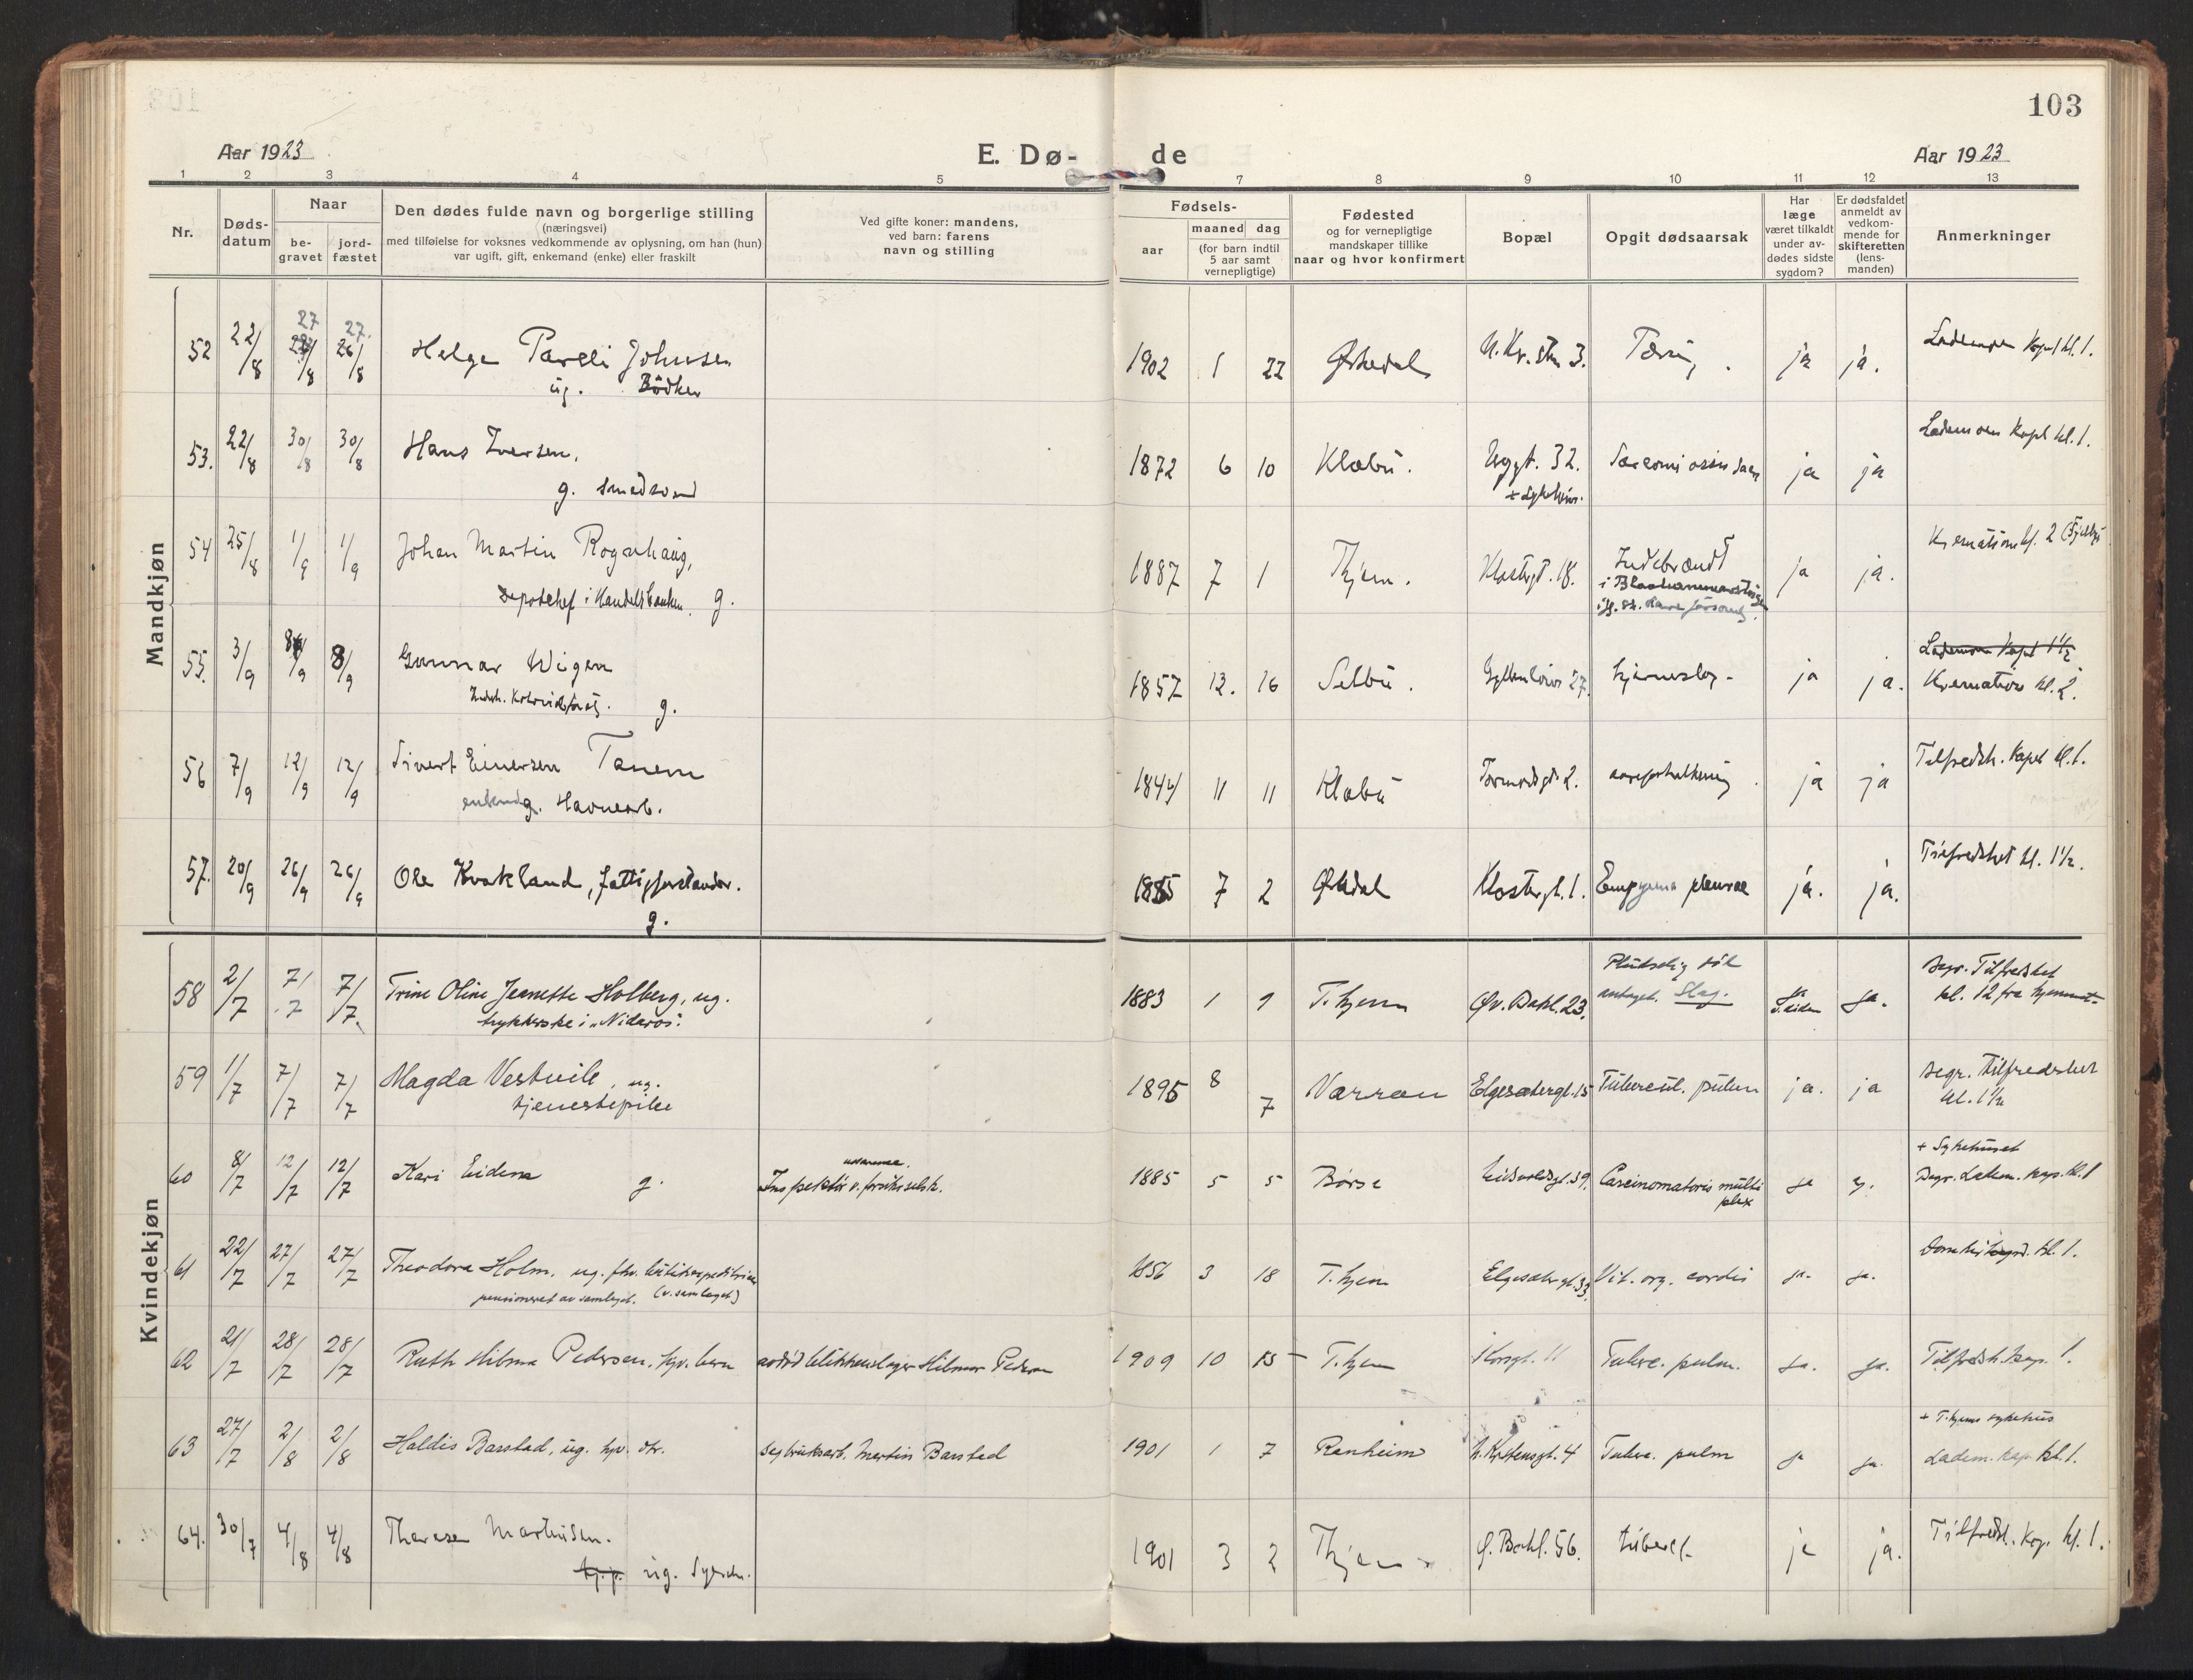 103
Aar 1923
E. Dø- de
Aar 1923
1 2 3 4 5 7 8 9 10 11 12 13
Nr.
Døds-datum
Naar
be-gravet
jord-fæstet
Den dødes fulde navn og borgerlige stilling
(næringsvei)
med tilføielse for voksnes vedkommende av oplysning, om han (hun)
var ugift, gift, enkemand (enke) eller fraskilt
Ved gifte koner: mandens,
ved barn: farens
navn og stilling
Fødsels-
aar
maaned dag
(for barn indtil
5 aar samt
vernepligtige)
Fødested
og for vernepligtige
mandskaper tillike
naar og hvor konfirmert
Bopæl
Opgit dødsaarsak
Har
læge
været tilkaldt
under av-
dødes sidste
sygdom?
Er dødsfaldet
anmeldt av
vedkom-
mende for
skifteretten
(lens-
manden)
Anmerkninger
Mandkjøn
52 22/8 27 26/8 27. 26/8 Helge Pareli Johnsen 1902 1 22 Ørkedal Tæring. ja ja. Lademoen Kapel kl. 1.
ug. Bødker
53. 22/8 30/8 30/8 Hans Iversen. 1872 6 10 Klæbu. 32. ja ja Lademoen Kapel kl. 1.
g. smedsvend + Sykehus.
54 25/8 1/9 1/9 Johan Martin Rognhaug, 1887 7 1 Thjem. Klostergt. 18. Indebrændt ja ja. Kremation kl. 2
Depotchef i Handelsbanken. g.
55. 3/9 8/9 8/9 Gunnar Wigen 1857 12. 16 Selbu. Gyldenløves 27. hjerneslag. ja ja. Lademoen Kapel 1½
g. Kremation kl. 2.
56 7/9 12/9 12/9 Sivert Einersen Tanem 1844 11 11 Klæbu Tormodsgt. 2. aareforkalkning. ja ja Tilfredsh. Kapel kl. 1.
enkemd. Havnearb.
57. 20/9 26/9 26/9 Ole Kvakland, fattigforstander. 1885 7 2 Ørkdal Klostergt. 1. Empyema pleurae ja. ja. Tilfredshet kl. 1½.
g.
Kvindekjøn
58 2/7 7/7 7/7. Trine Oline Jeanette Holberg, ug. 1883 1 9 T.hjem Øv. Bakl. 23. Pludselig død antaget. Slag. ja. Begr. Tilfredshet
trykkerske i „Nidaros". kl. 12 fra hjemmet
59 1/7 7/7 7/7 Magda Vestvik, ug. 1895 8 7 Nærrøen Elgesætergt. 15 Tubercul. pulm ja. ja Begr. Tilfredshet
tjenestepike kl. 1½
60 8/7 12/7 12/7 Kari Eidem g. Inspektør v. forsikr.selsk. 1885 5 5 Børse Eidsvoldsgt. 39. Carcinomatosis multi plex ja + Sykehuset
Begr. Ladem. kap. kl. 1
61 22/7 27/7 27/7 Theodora Holm. ug. fhv. butikexpeditrice 1856 3 18 T.hjem Elgesætergt. 33. Vit. org. cordis ja. ja. kl. 1.
pensioneret av samlaget. (v. samlaget)
62 21/7 28/7 28/7 Ruth Hilma Pedersen, hjv. barn avdød blikkenslager Hilmar Pedersen 1909 10 15 T.hjem Korsgt. 11 Tuberc. pulm. ja. ja. Tilfredsh. kap. 1.
63 27/7 2/8 2/8 Haldis Barstad, ug. hjv. dtr. Martin Barstad 1901 1 7 Ranheim 4 Tuberc. pulm ja ja. + T.hjems sykehus
Ladem. kap. kl. 1.
64. 30/7 4/8 4/8 Therese Martinsen. 1901 3 2 Thjem Ø. Bakl. 56. tubercl. ja ja. Tilfredsh. Kap. kl. 1.
tj.p. ug. Syersk.